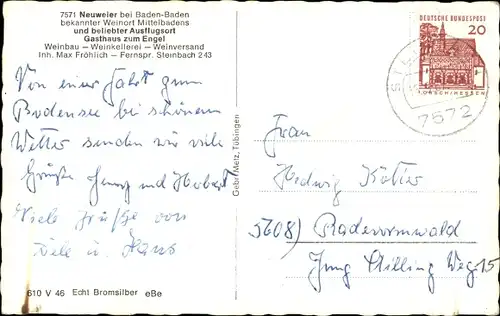 7571 Neuweier bei Baden-Baden
bekannter Weinort Mittelbadens
und beliebter Ausflugsort
Gasthaus zum Engel
Weinbau – Weinkellerei – Weinversand
Inh. Max Fröhlich – Fernspr. Steinbach 243
Von einer Fahrt zum
Bodensee bei schönem
Wetter senden wir viele
Grüße und Herbert
Viele Grüße von
u. Hans
610 V 46 Echt Bromsilber eBe
Gebr. Metz, Tübingen
DEUTSCHE BUNDESPOST
20
LORSCH/HESSEN
7572
Frau
Hedwig
5608) Radevormwald
Jung Stilling Weg 15